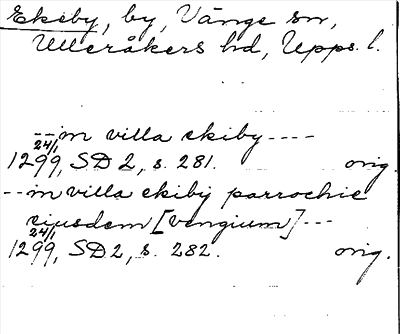 Ekeby, by, Vänge sn,
Ulleråkers hd, Upps. l.
--in villa ekiby----
24/1
1299, SD 2, s. 281. orig.
--in villa ekibij parrochie
eiusdem [vengium]---
24/1
1299, SD 2, s. 282. orig.